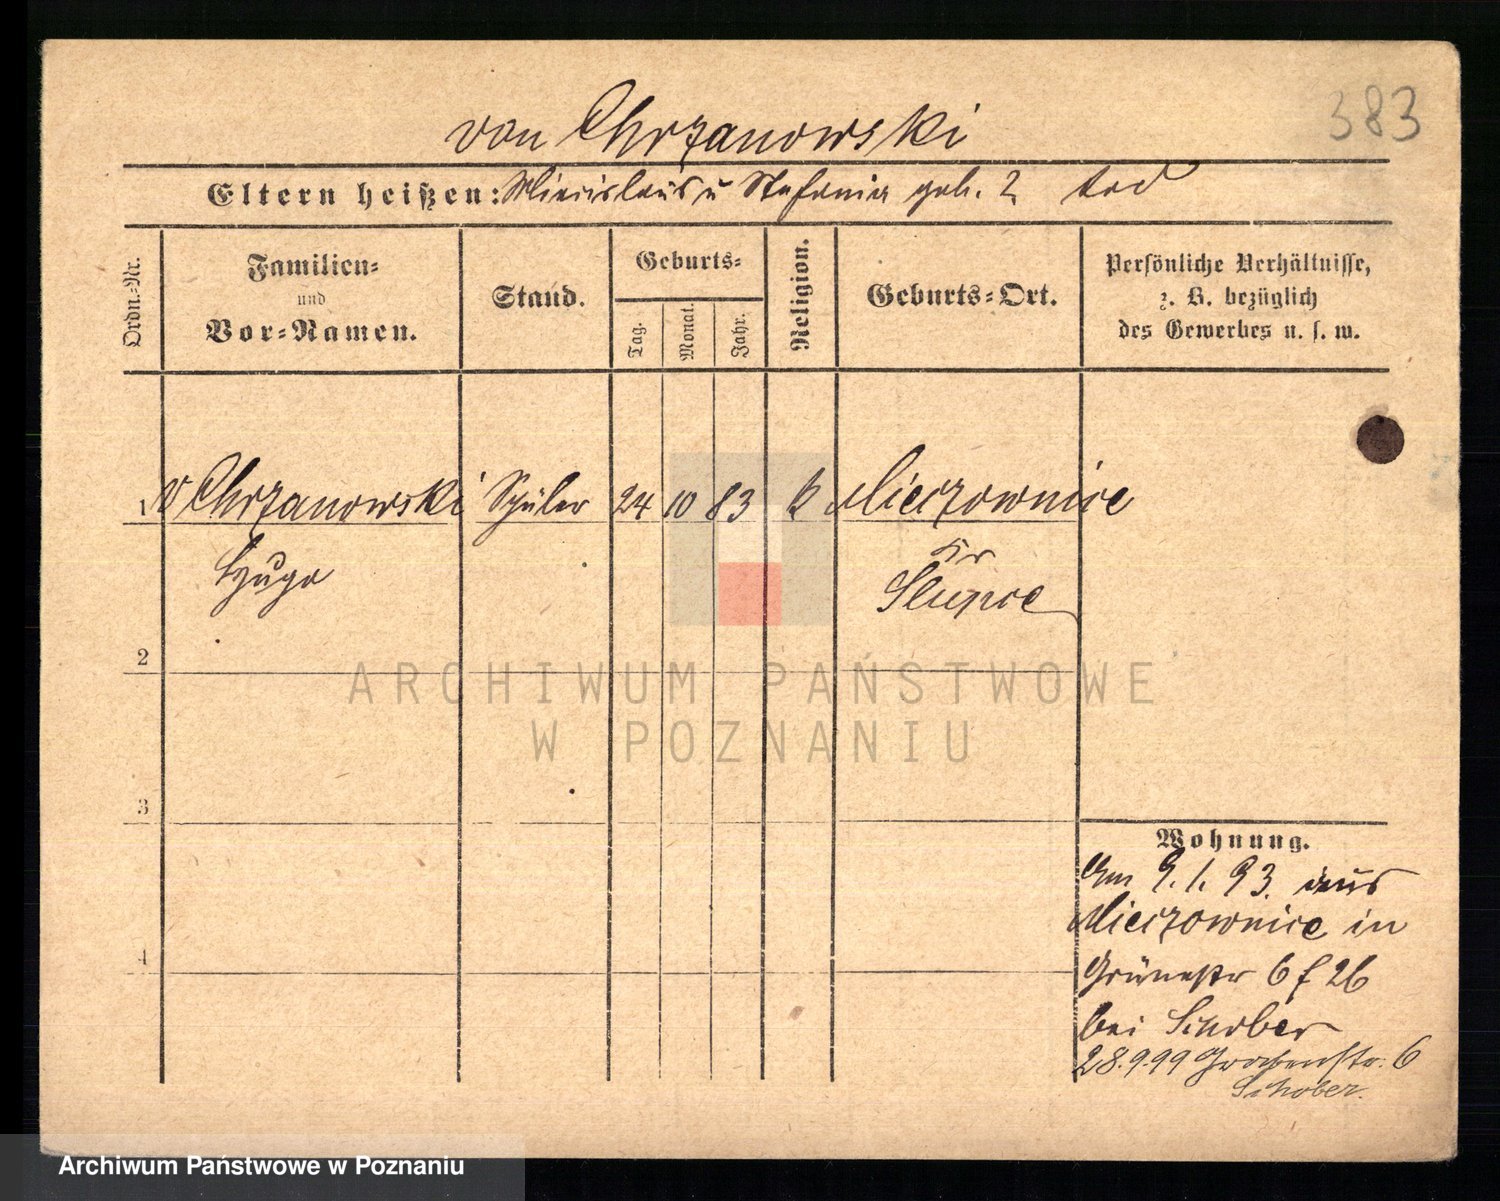 383
von Chrzanowski
Eltern heißen: Miecislaus u Stefania geb. ? tod
Ordn.-Nr.
Familien- und Vor-Namen.
Stand.
Geburts-
Tag.
Monat.
Jahr.
Religion.
Geburts-Ort.
Persönliche Verhältnisse,
z. B. bezüglich
des Gewerbes u. s. w.
1 v Chrzanowski Schüler 24 10 83 k Mieczownice
Hugo
Kr
Slupce
2
3
4
Wohnung.
Am 9.1.93. aus
Mieczownice in
Grünestr 6 f 26
bei Schober
28.9.99 Grabenstr. 6
Schober.
ARCHIWUM PAŃSTWOWE
W POZNANIU
Archiwum Państwowe w Poznaniu